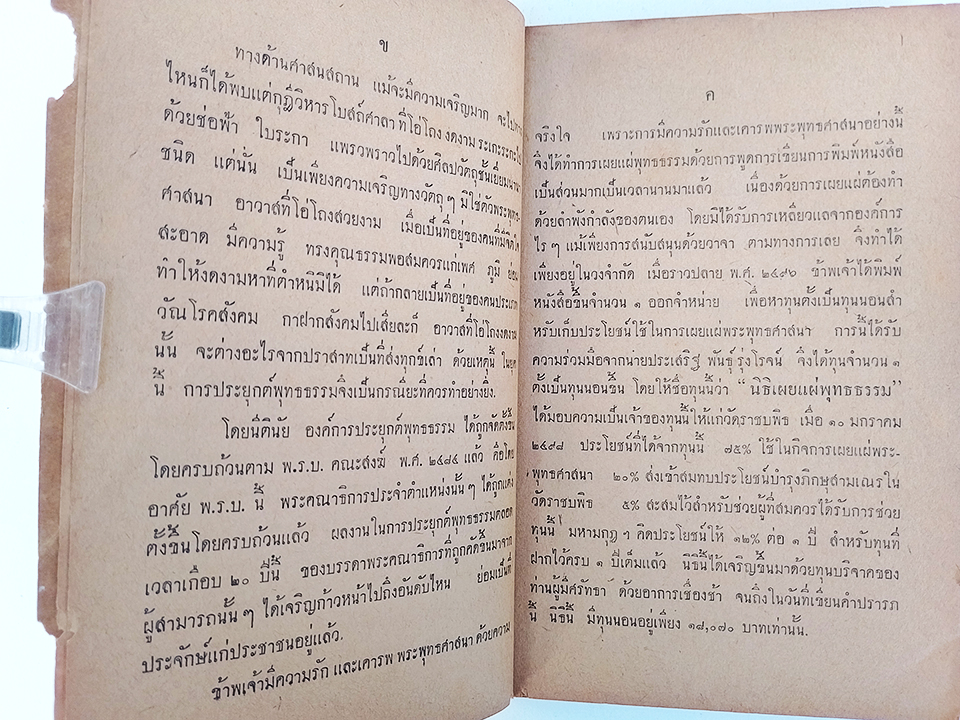 ข
ทางด้านศาสนสถาน แม้จะมีความเจริญมาก จะไปทาง
ไหนก็ได้พบแต่กุฏิวิหารโบสถ์ศาลา ที่โอ่โถง งดงาม ระเกะระกะไป
ด้วยช่อฟ้า ใบระกา แพรวพราวไปด้วยศิลปวัตถุชั้นเยี่ยมนานา
ชนิด แต่นั่น เป็นเพียงความเจริญทางวัตถุ ๆ มิใช่ตัวพระพุทธ-
ศาสนา อาวาสที่โอ่โถงสวยงาม เมื่อเป็นที่อยู่ของคนที่มีจิตใจ
สะอาด มีความรู้ ทรงคุณธรรมพอสมควรแก่เพศ ภูมิ ย่อม
ทำให้งดงามหาที่ตำหนิมิได้ แต่ถ้ากลายเป็นที่อยู่ของคนประเภท
วัณโรคสังคม กาฝากสังคมไปเสียละก็ อาวาสที่โอ่โถงงดงาม
นั้น จะต่างอะไรจากปราสาทเป็นที่ส่งทุกข์เล่า ด้วยเหตุนี้ ในยุค
นี้ การประยุกต์พุทธธรรมจึงเป็นกรณียะที่ควรทำอย่างยิ่ง.
โดยนิตินัย องค์การประยุกต์พุทธธรรม ได้ถูกจัดตั้งขึ้น
โดยครบถ้วนตาม พ.ร.บ. คณะสงฆ์ พ.ศ. ๒๔๘๔ แล้ว คือโดย
อาศัย พ.ร.บ. นี้ พระคณาธิการประจำตำแหน่งนั้น ๆ ได้ถูกแต่ง
ตั้งขึ้นโดยครบถ้วนแล้ว ผลงานในการประยุกต์พุทธธรรมตลอด
เวลาเกือบ ๒๐ ปีนี้ ของบรรดาพระคณาธิการที่ถูกคัดขึ้นมาจาก
ผู้สามารถนั้น ๆ ได้เจริญก้าวหน้าไปถึงอันดับไหน ย่อมเป็นที่
ประจักษ์แก่ประชาชนอยู่แล้ว.
ข้าพเจ้ามีความรัก และเคารพ พระพุทธศาสนา ด้วยความ
ค
จริงใจ เพราะการมีความรักและเคารพพระพุทธศาสนาอย่างนี้
จึงได้ทำการเผยแผ่พุทธธรรมด้วยการพูดการเขียนการพิมพ์หนังสือ
เป็นส่วนมากเป็นเวลานานมาแล้ว เนื่องด้วยการเผยแผ่ต้องทำ
ด้วยลำพังกำลังของตนเอง โดยมิได้รับการเหลียวแลจากองค์การ
ไร ๆ แม้เพียงการสนับสนุนด้วยวาจา ตามทางการเลย จึงทำได้
เพียงอยู่ในวงจำกัด เมื่อราวปลาย พ.ศ. ๒๔๙๖ ข้าพเจ้าได้พิมพ์
หนังสือขึ้นจำนวน ๑ ออกจำหน่าย เพื่อหาทุนตั้งเป็นทุนนอนสำ
หรับเก็บประโยชน์ใช้ในการเผยแผ่พระพุทธศาสนา การนี้ได้รับ
ความร่วมมือจากนายประเสริฐ พันธุ์รุ่งโรจน์ จึงได้ทุนจำนวน ๑
ตั้งเป็นทุนนอนขึ้น โดยให้ชื่อทุนนี้ว่า “นิธิเผยแผ่พุทธธรรม”
ได้มอบความเป็นเจ้าของทุนนี้ให้แก่วัดราชบพิธ เมื่อ ๑๐ มกราคม
๒๔๙๘ ประโยชน์ที่ได้จากทุนนี้ ๗๕% ใช้ในกิจการเผยแผ่พระ-
พุทธศาสนา ๒๐% ส่งเข้าสมทบประโยชน์บำรุงภิกษุสามเณรใน
วัดราชบพิธ ๕% สะสมไว้สำหรับช่วยผู้ที่สมควรได้รับการช่วย
ทุนนี้ มหามกุฏ ฯ คิดประโยชน์ให้ ๑๒% ต่อ ๑ ปี สำหรับทุนที่
ฝากไว้ครบ ๑ ปีเต็มแล้ว นิธินี้ได้เจริญขึ้นมาด้วยทุนบริจาคของ
ท่านผู้มีศรัทธา ด้วยอาการเชื่องช้า จนถึงในวันที่เขียนคำปรารภ
นี้ นิธินี้ มีทุนนอนอยู่เพียง ๑๘,๐๗๐ บาทเท่านั้น.